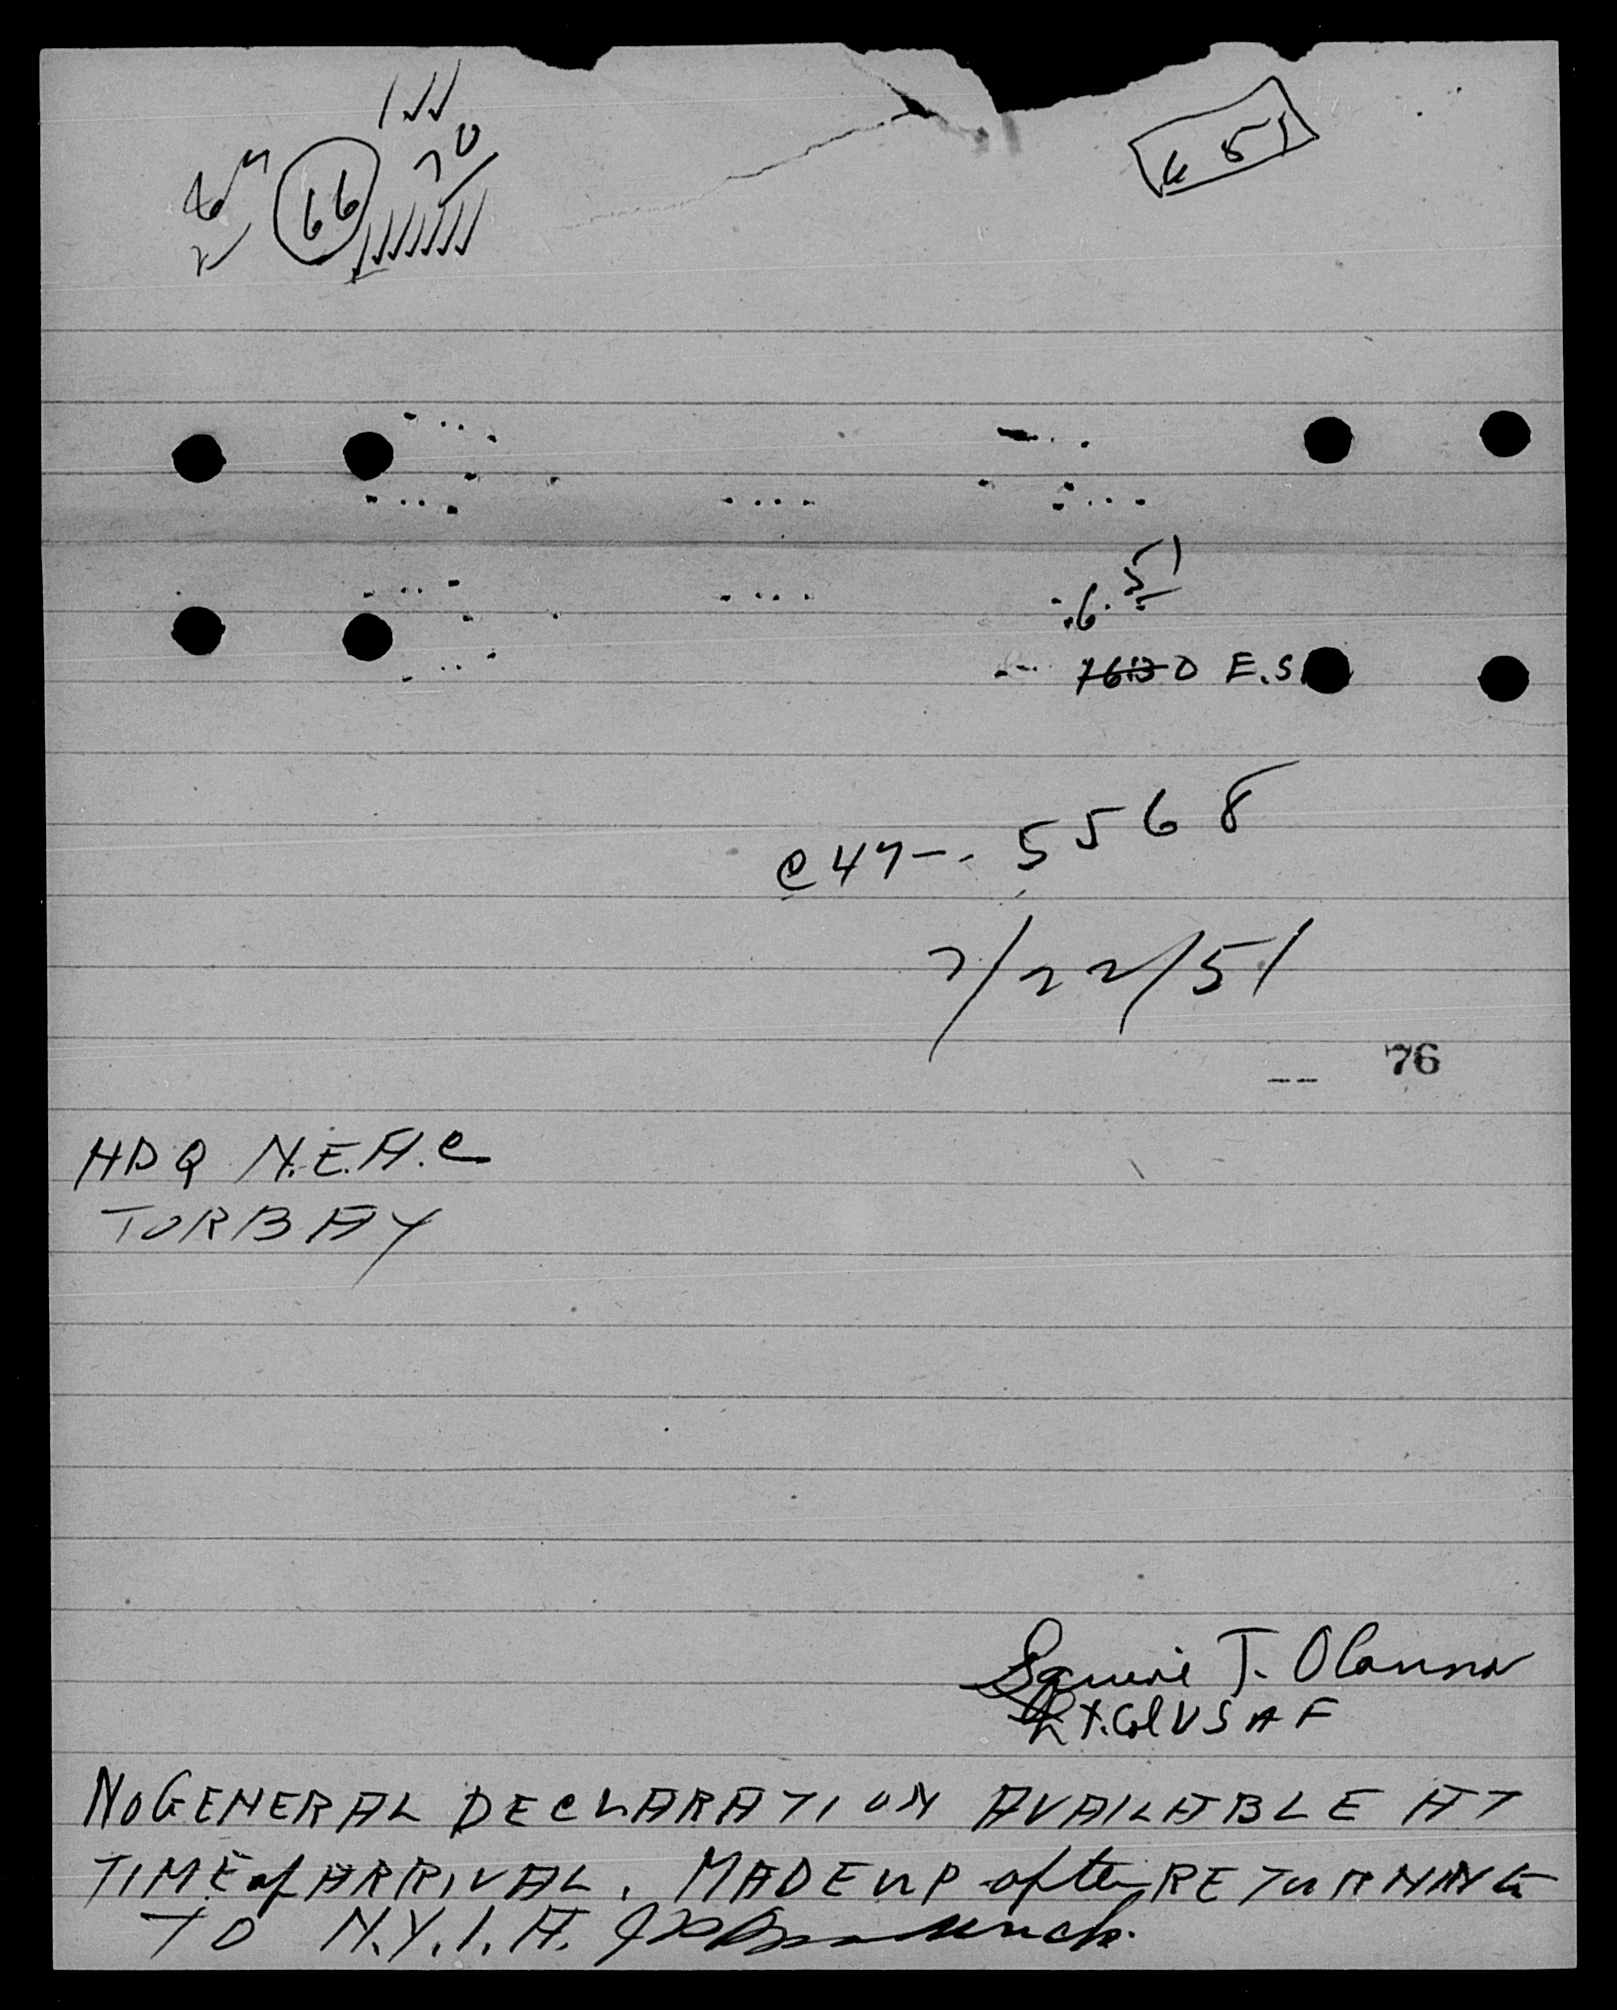 66
70
651
51
.6.
7630 E.S.
C47-- 5568
7/22/51
-- 76
HDQ N.E.A.C
TORBAY
T. OConnor
Lt. Col USAF
NO GENERAL DECLARATION AVAILABLE AT
TIME of ARRIVAL. MADE UP after RETURNING
TO N.Y.I.A.